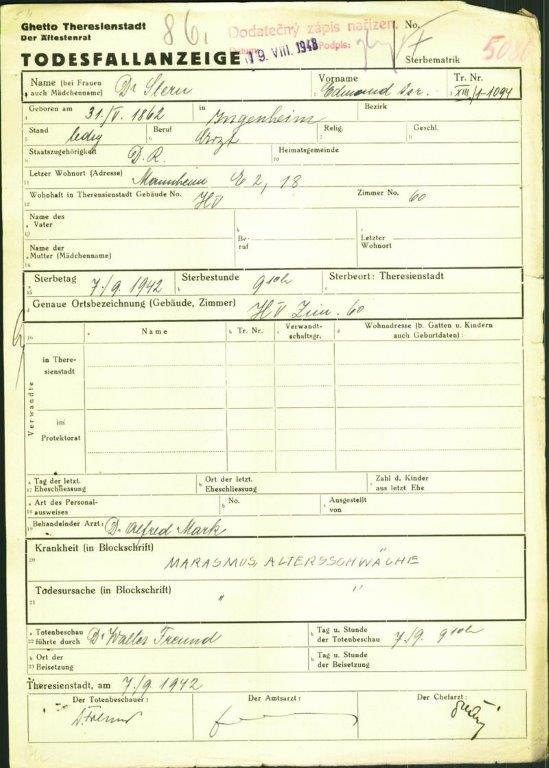 Ghetto Theresienstadt
Der Ältestenrat
86.
Dodatečný zápis nařízen. No.
Datum: 19. VIII. 1948 Podpis:
TODESFALLANZEIGE
Sterbematrik
Name (bei Frauen auch Mädchenname) Dr Stern
Vorname Edmund Isr.
Tr. Nr. XIII/1-1094
Geboren am 31./V. 1862 in Ingenheim Bezirk
Stand ledig Beruf Arzt Relig. Geschl.
Staatszugehörigkeit D. R. Heimatsgemeinde
Letzer Wohnort (Adresse) Mannheim E 2, 18
Wohnhaft in Theresienstadt Gebäude No. HV Zimmer No. 60
Name des Vater Beruf Letzter Wohnort
Name der Mutter (Mädchenname)
Sterbetag 7./9 1942 Sterbestunde 9 Sterbeort: Theresienstadt
Genaue Ortsbezeichnung (Gebäude, Zimmer) HV Zim. 60
Name Tr. Nr. Verwandtschaftsgr. Wohnadresse (b. Gatten u. Kindern auch Geburtdaten):
Verwandte
in Theresienstadt
im Protektorat
Tag der letzt. Eheschliessung Ort der letzt. Eheschliessung Zahl d. Kinder aus letzt Ehe
Art des Personalausweises No. Ausgestellt von
Behandelnder Arzt: Dr. Alfred Mark
Krankheit (in Blockschrift) MARASMUS, ALTERSSCHWÄCHE
Todesursache (in Blockschrift) " "
Totenbeschau führte durch Dr Walter Freund Tag u. Stunde der Totenbeschau 7./9. 9
Ort der Beisetzung Tag u. Stunde der Beisetzung
Theresienstadt, am 7./9 1942
Der Totenbeschauer: Der Amtsarzt: Der Chefarzt:
Dr. Freund